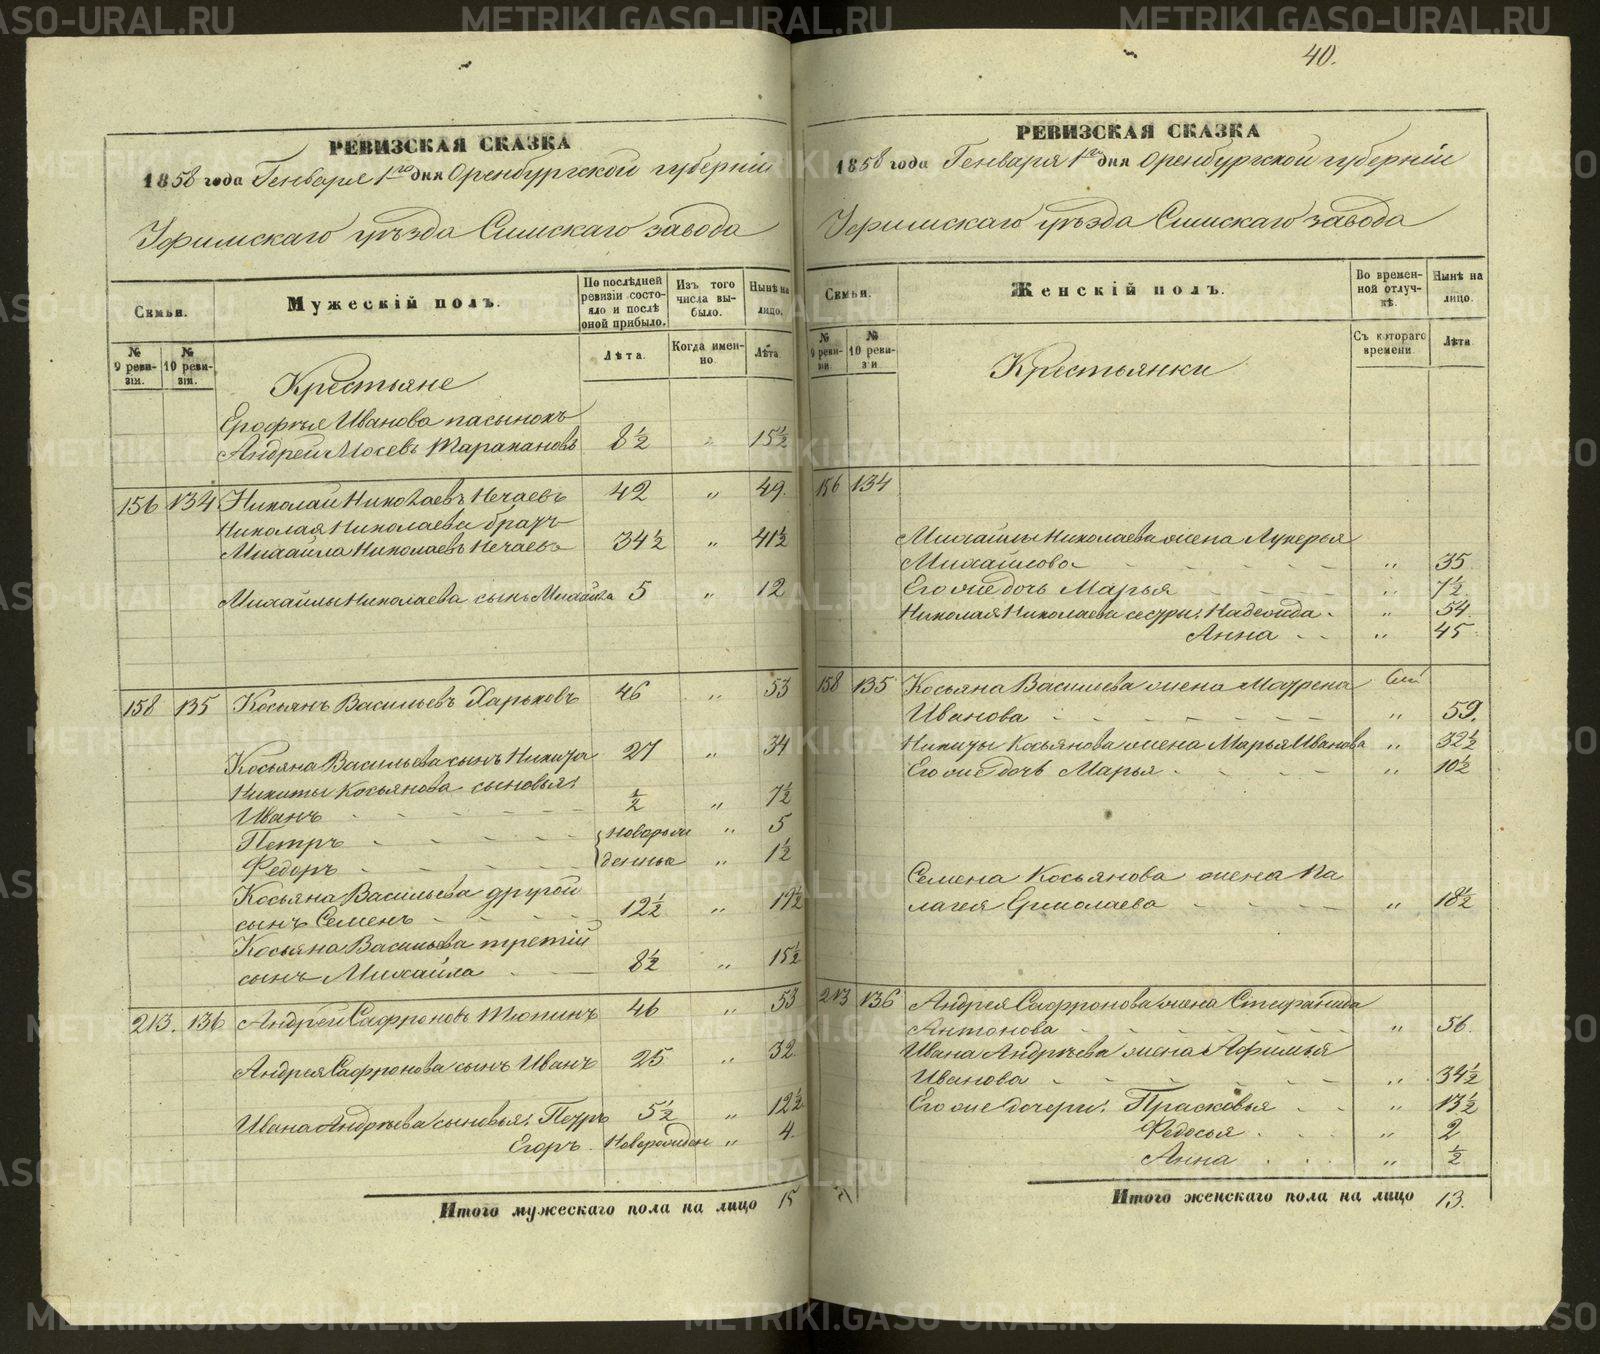 РЕВИЗСКАЯ СКАЗКА
1858 года Генваря 1го дня Оренбургской губерніи
Уфимскаго уѣзда Симскаго завода
Семьи.
Мужескій полъ.
По послѣдней ревизіи состояло и послѣ оной прибыло.
Изъ того числа выбыло.
Нынѣ на лицо.
№ 9 ревизіи.
№ 10 ревизіи.
Лѣта.
Когда именно.
Лѣта
Крестьяне
Ерофѣя Иванова пасынокъ
Андрей Мосевъ Таракановъ 8½ „ 15½
156 134 Николай Николаевъ Нечаевъ 42 „ 49.
Николая Николаева братъ
Михайла Николаевъ Нечаевъ 34½ „ 41½
Михайлы Николаева сынъ Михайла 5 „ 12
158 135 Косьянъ Васильевъ Харьковъ 46 „ 53
Косьяна Васильева сынъ Никита 27 „ 34
Никиты Косьянова сыновья:
Иванъ ½ „ 7½
Петръ новорож „ 5
Федоръ денные „ 1½
Косьяна Васильева другой
сынъ Семенъ 12½ „ 19½
Косьяна Васильева третій
сынъ Михайла 8½ „ 15½
213. 136 Андрей Сафроновъ Тюпинъ 46 „ 53
Андрея Сафронова сынъ Иванъ 25 „ 32
Ивана Андрѣева сыновья: Петръ 5½ „ 12½
Егоръ Новорожден „ 4
Итого мужескаго пола на лицо 15
40.
РЕВИЗСКАЯ СКАЗКА
1858 года Генваря 1го дня Оренбургской губерніи
Уфимскаго уѣзда Симскаго завода
Семьи.
Женскій полъ.
Во временной отлучкѣ.
Нынѣ на лицо.
№ 9 ревизіи
№ 10 ревизіи
Съ котораго времени.
Лѣта
Крестьянки
156 134
Михайлы Николаева жена Лукерья
Михайлова „ 35
Его же дочь Марья „ 7½
Николая Николаева сестры: Надежда „ 54
Анна „ 45
158 135 Косьяна Васильева жена Матрена
Иванова „ 59.
Никиты Косьянова жена Марья Иванова „ 32½
Его же дочь Марья „ 10½
Семена Косьянова жена Па
лагея Ермолаева „ 18½
213 136 Андрея Сафронова жена Стефанида
Антонова „ 56
Ивана Андрѣева жена Афимья
Иванова „ 34½
Его же дочери: Прасковья „ 13½
Федосья „ 2
Анна „ ½
Итого женскаго пола на лицо 13.
METRIKI.GASO-URAL.RU